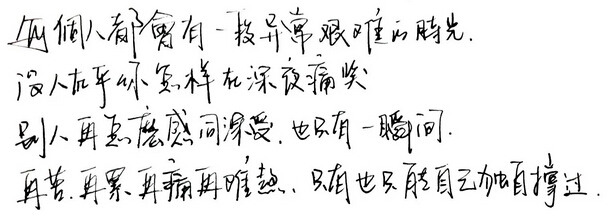 每個人都會有一段异常艰难的時光.
没人在乎你怎样在深夜痛哭
别人再怎麽感同深受.也只有一瞬间.
再苦.再累.再痛再难熬.只有也只能自己独自撑过.